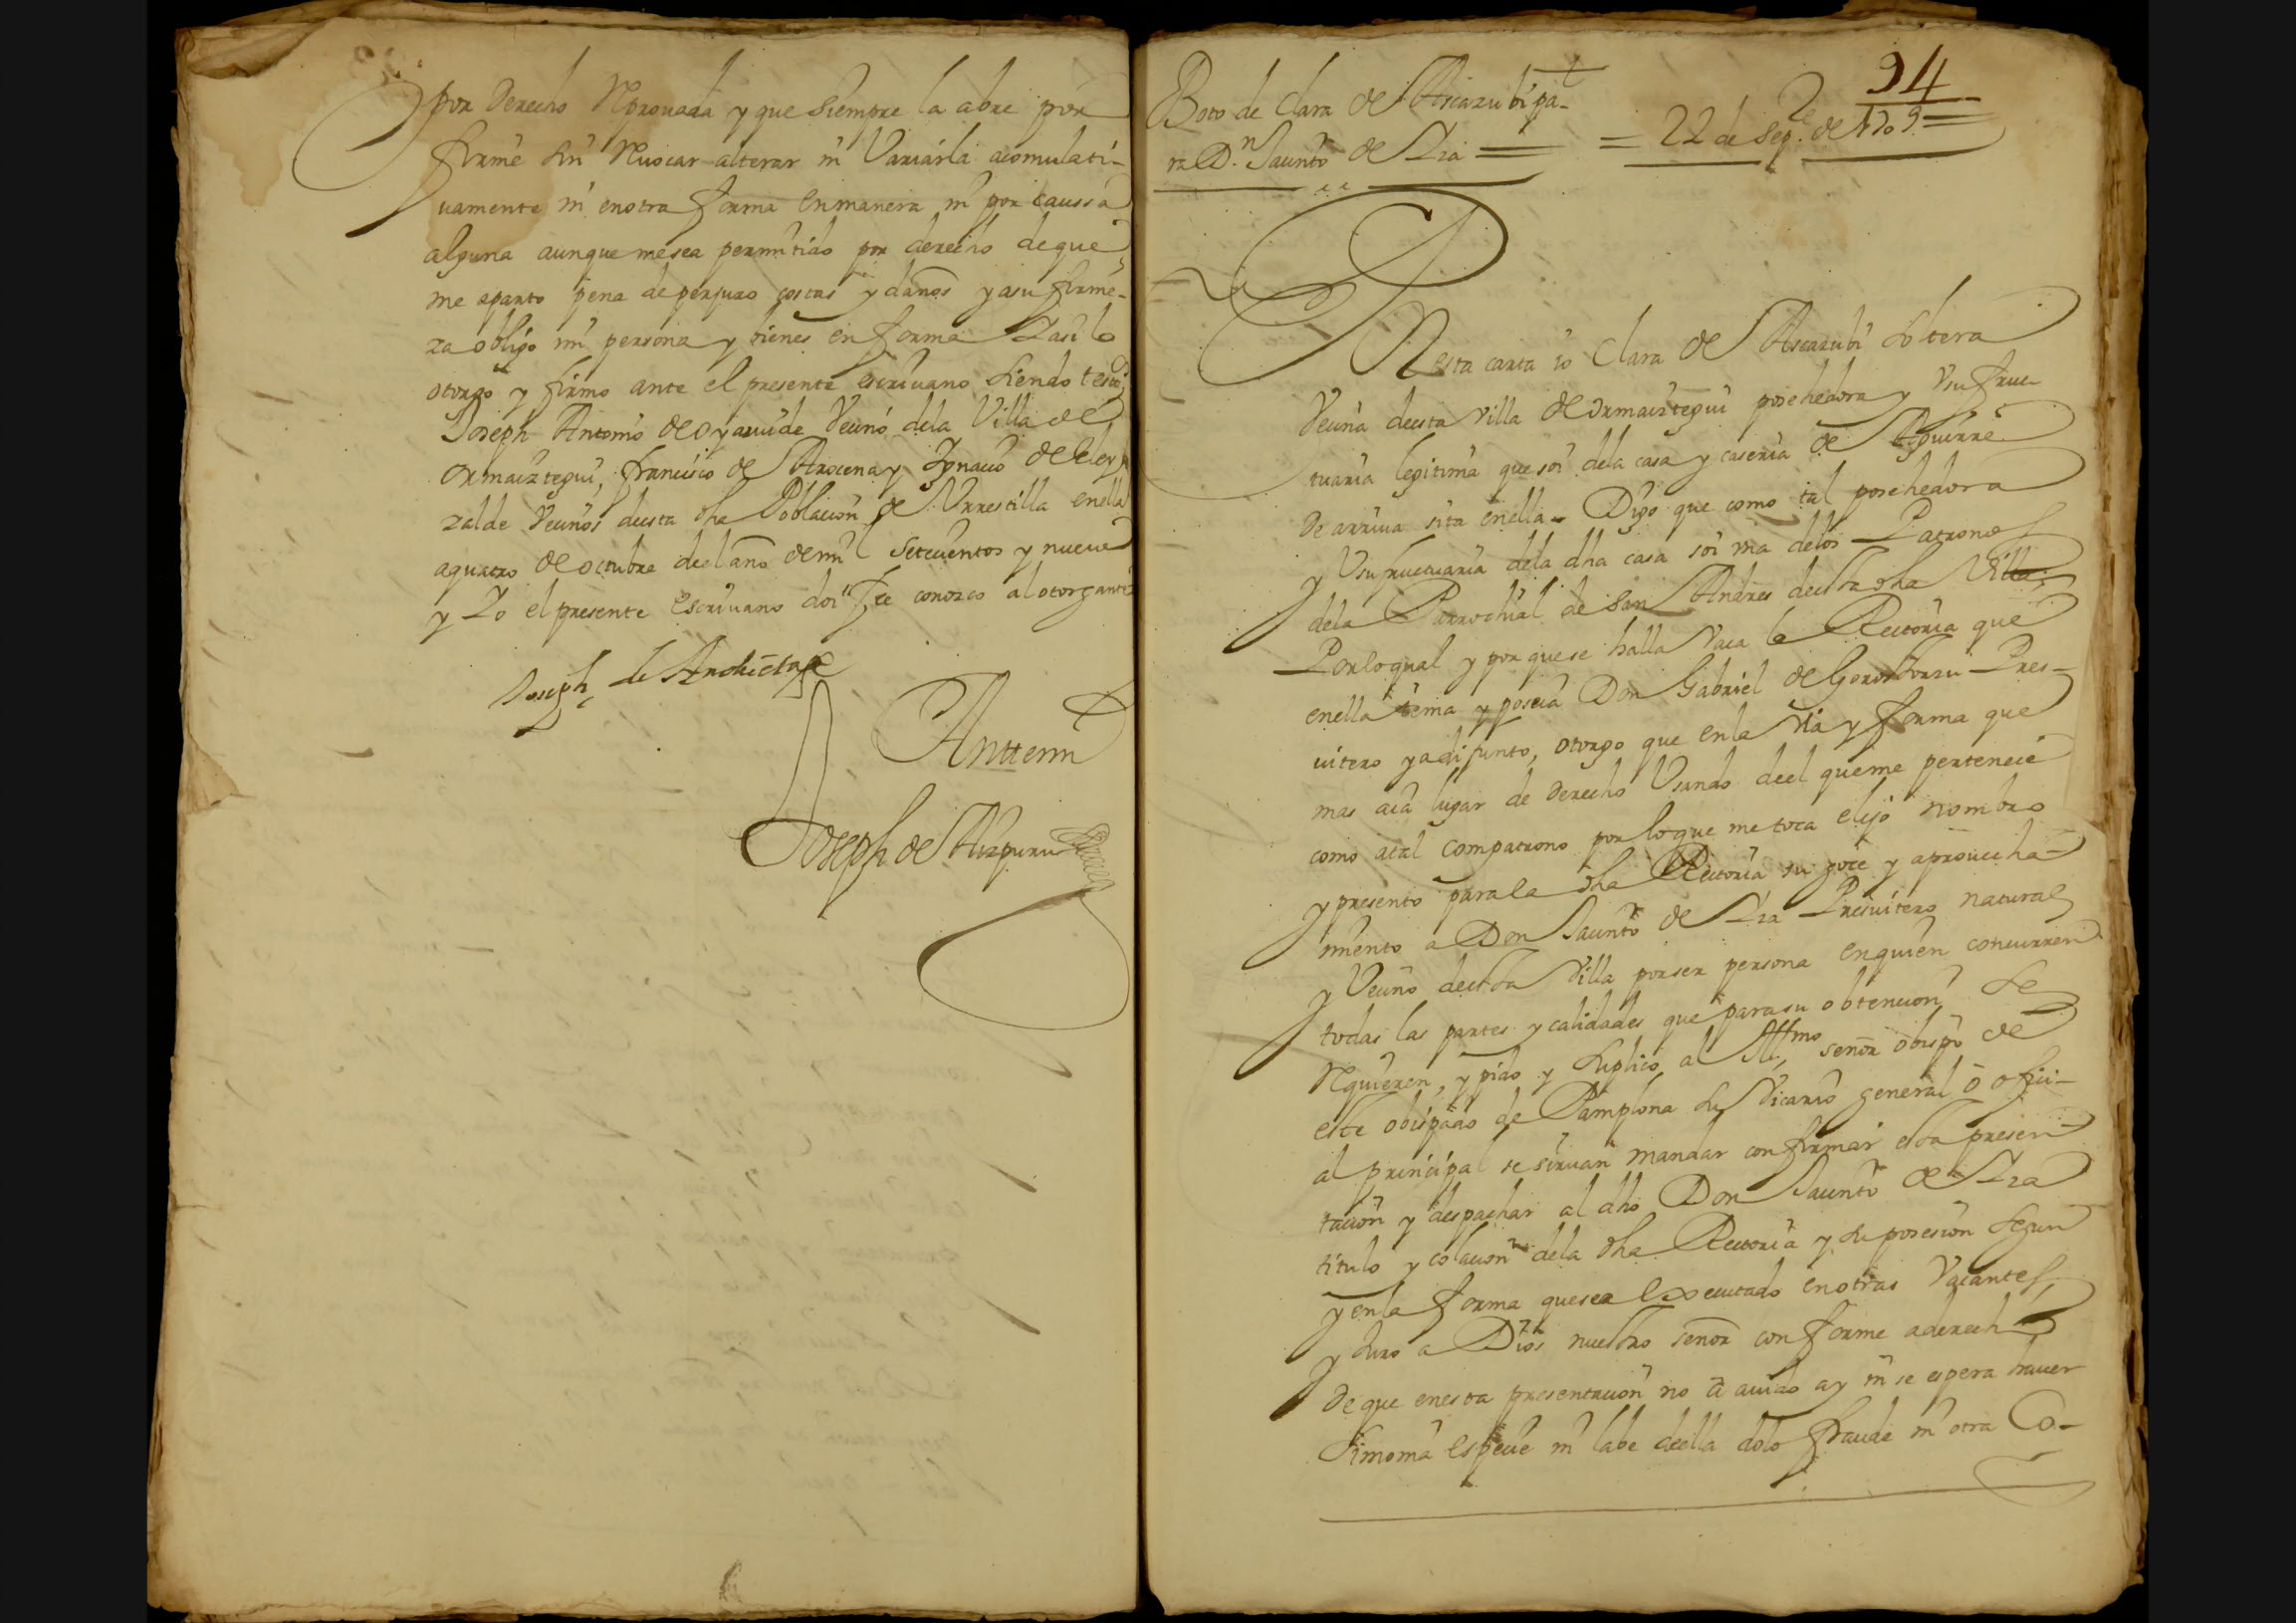 por derecho Reprouada y que siempre la abre por
firme sin Reuocar alterar ni Variarla acomulati-
uamente ni enotra forma enmanera ni por caussa
alguna aunque mesea permitido por derecho deque
me aparto pena deperjuro costas y daños yasu firme-
za obligo mi persona y bienes en forma Yasi lo
otorgo y firmo ante el presente escriuano siendo tesi
Joseph Antonio de oyaruide Vecino dela Villa de
ormaiztegui, francisco de Arocena y Ignacio de eley
zalde Vecinos desta dha Poblacion de Vrrestilla enella
aquatro de octubre deel año demil setecientos y nueue
y Yo el presente escriuano doi fee conozco al otorgante
Joseph de Anchieta
Anttemi
Joseph de Aizpuru
94
Boto de Clara de Ascazubi pa-
ra D.n Jacinto de Yza
= 22 de Sep.e de 1709 =
En esta carta io Clara de Ascazubi soltera
Vecina deesta villa de ormaiztegui posehedora y Vsufruc
tuaria legitima que soi dela casa y caseria de Aguirre
de arriua sita enella - Digo que como tal posehedora
y Vsufructuaria dela dha casa soi vna delos Patronos
dela Parrochial de san Andres deesta dha Villa
Porloqual y por quese halla Vaca la Rectoria que
enella tenia y poseia Don Gabriel de Gorostorzu Pres-
uitero yadifunto, otorgo que enla via y forma que
mas aia lugar de derecho Vsando deel queme pertenece
como atal compatrono por loque me toca elijo nombro
y presento parala dha Rectoria su goce y aprouecha-
miento a Don Jacinto de Yza Presuitero natural
y Vecino deesta Villa porser persona enquien concurren
todas las partes y calidades que parasu obtencion se
Requieren, y pido y suplico al Illmo señor obispo de
este obispado de Pamplona su Vicario general o ofici-
al principal se siruan mandar confirmar esta presen-
tacion y despachar al dho Don Jacinto de Yza
titulo y colacion dela dha Rectoria y su posesion segun
y enla forma quesea executado enotras Vacantes,
y Juro a Dios nuestro señor conforme aderecho
de que enesta presentacion no a auido ay ni se espera hauer
simonia especie ni labe deella dolo fraude ni otra Co-